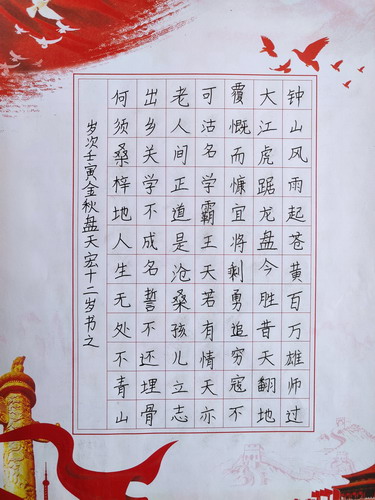 钟山风雨起苍黄百万雄师过
大江虎踞龙盘今胜昔天翻地
覆慨而慷宜将剩勇追穷寇不
可沽名学霸王天若有情天亦
老人间正道是沧桑孩儿立志
出乡关学不成名誓不还埋骨
何须桑梓地人生无处不青山
岁次壬寅金秋盘天宏十二岁书之